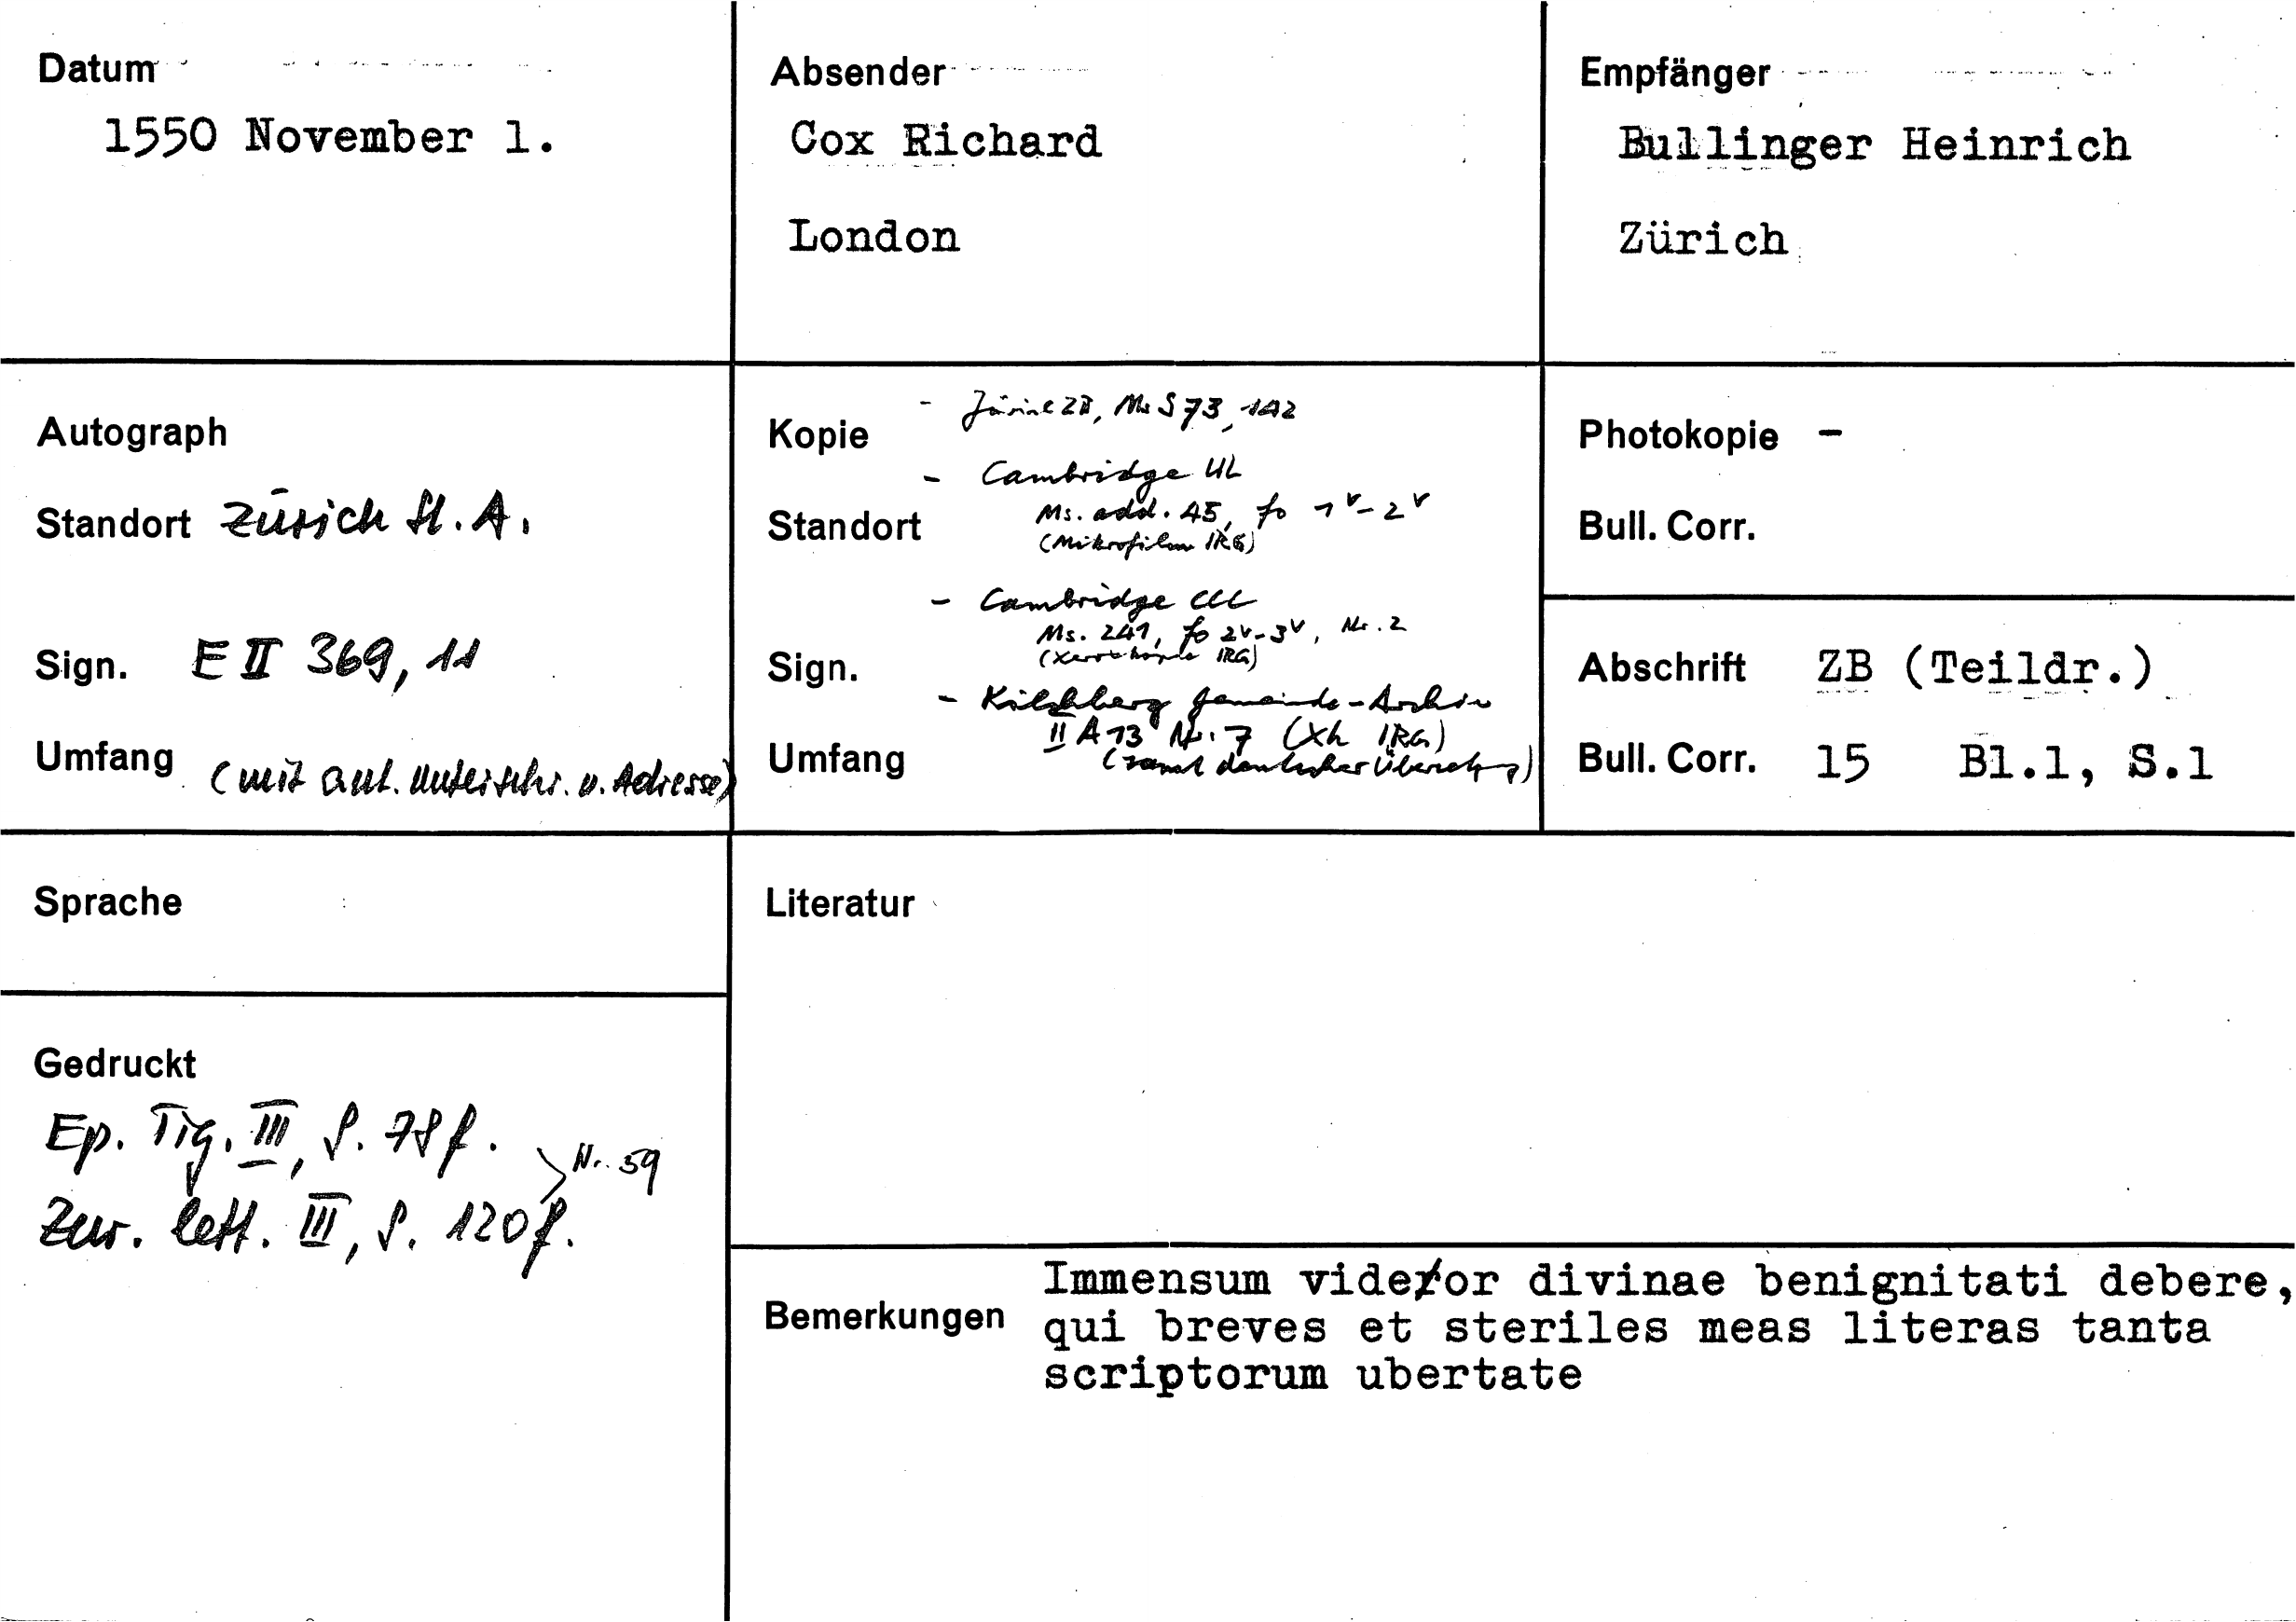 Datum
1550 November 1.
Absender
Cox Richard
London
Empfänger
Bullinger Heinrich
Zürich
Autograph
Standort Zürich St. A.
Sign. E II 369, 11
Umfang (mit aut. Unterschr. u. Adresse)
Kopie
- Zürich ZB, Ms S 73, 142
- Cambridge UL
Standort
Ms. add. 45, fo 1v-2v
(Mikrofilm IRG)
- Cambridge CCC
Ms. 241, fo 2v-3v, Nr. 2
Sign.
(Xerokopie IRG)
- Kilchberg Gemeinde-Archiv
II A 13 Nr. 7 (Xk IRG)
Umfang
(samt deutscher Übersetzung)
Photokopie -
Bull. Corr.
Abschrift ZB (Teildr.)
Bull. Corr. 15 Bl.1, S.1
Sprache
Gedruckt
Ep. Tig. III, S. 78 f.
Nr. 59
Zur. lett. III, S. 120 f.
Literatur
Bemerkungen
Immensum videor divinae benignitati debere,
qui breves et steriles meas literas tanta
scriptorum ubertate